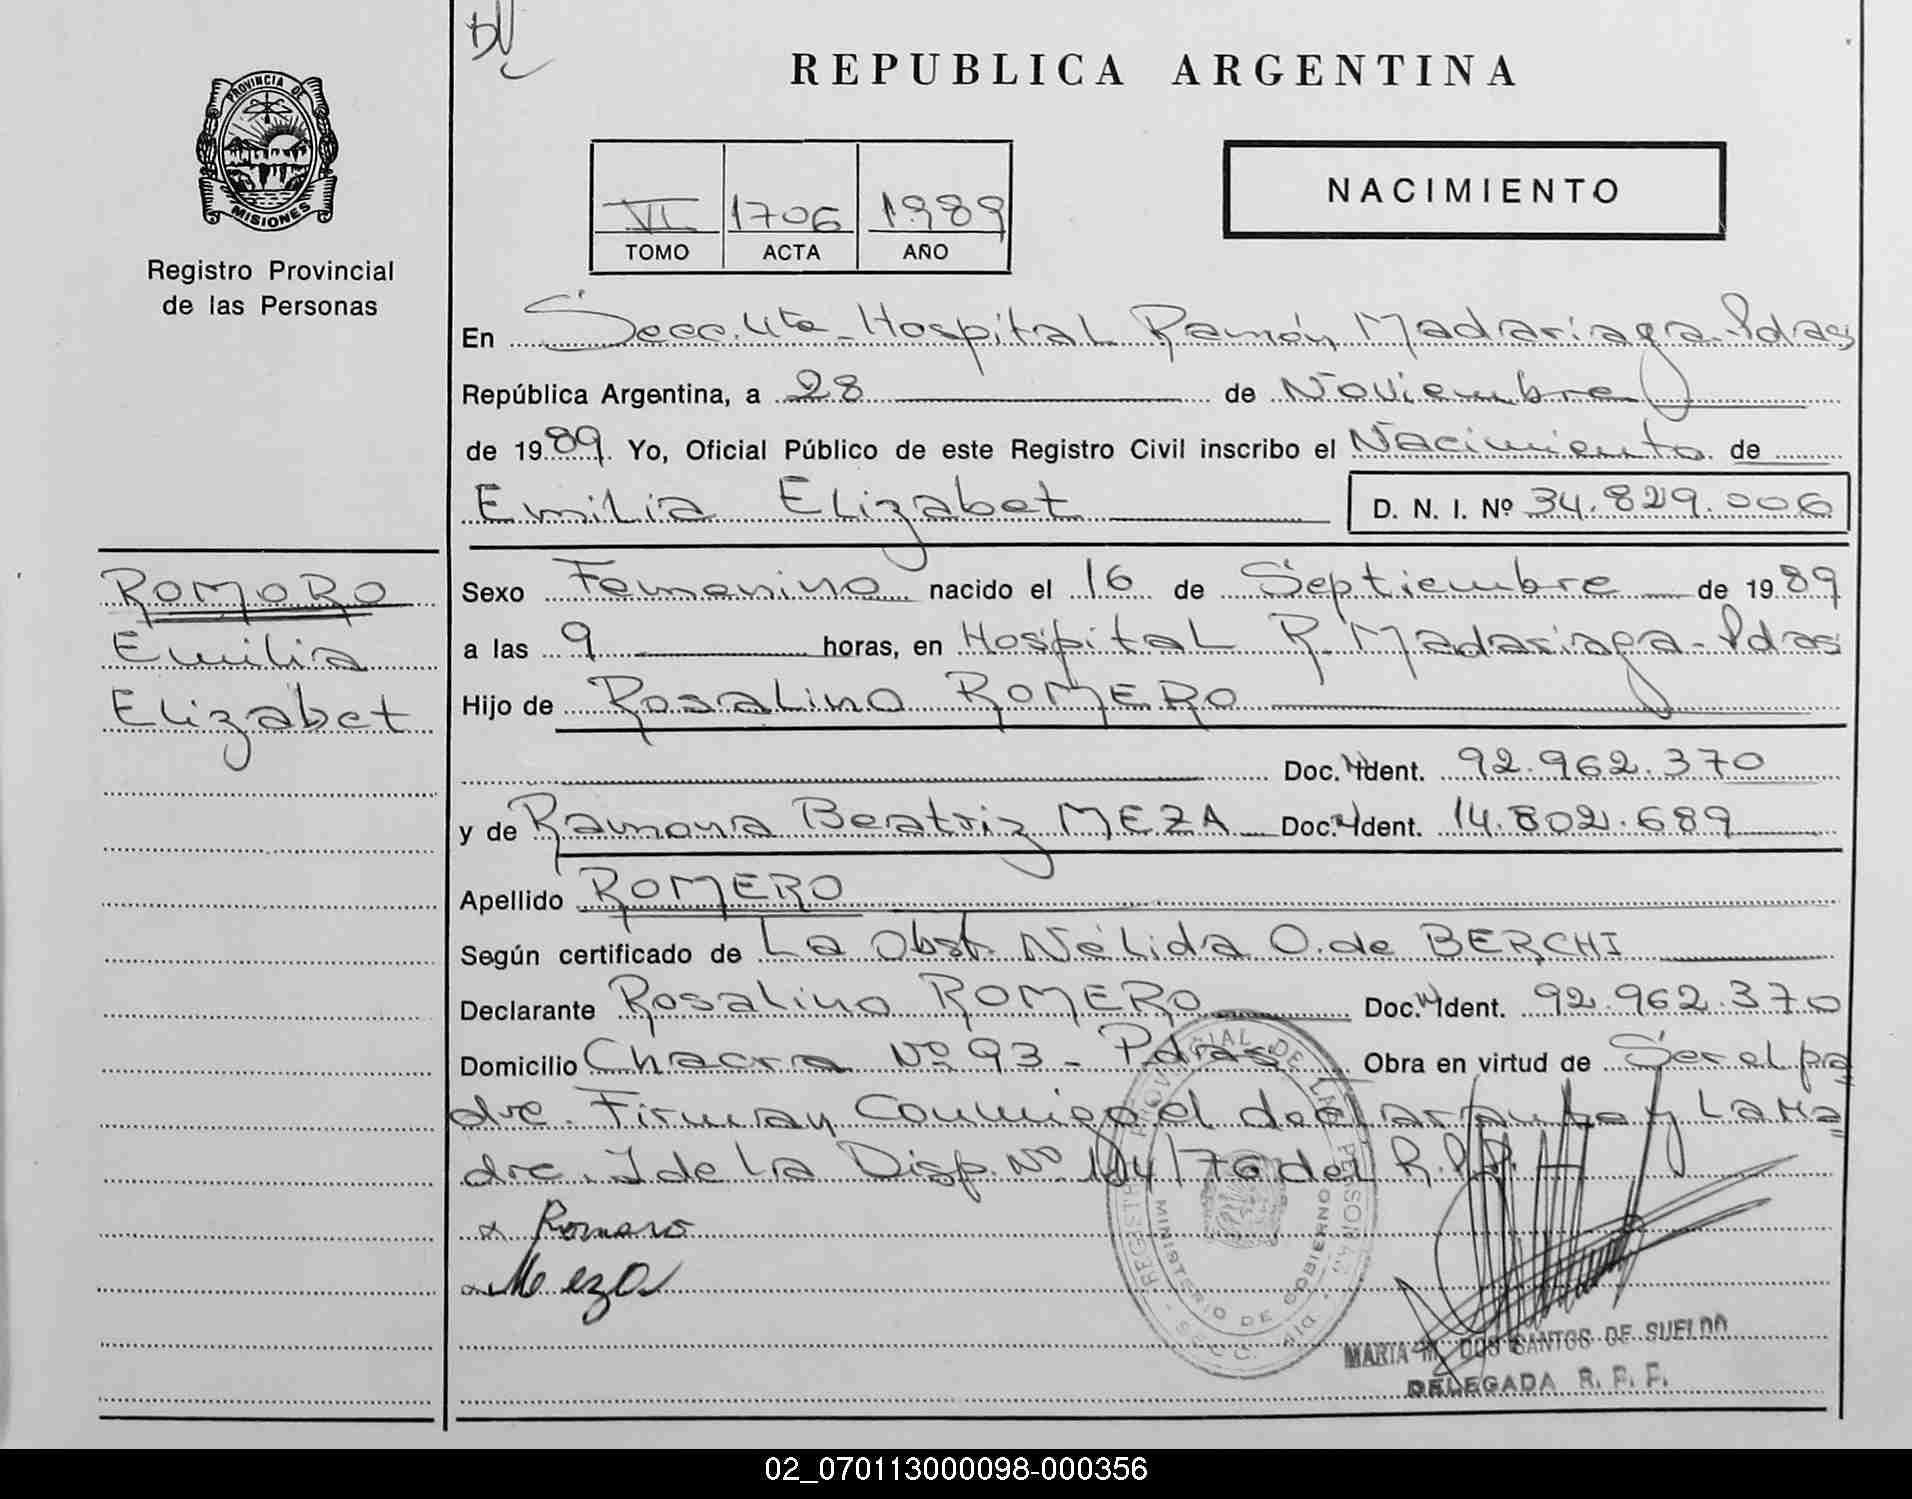 PROVINCIA DE
MISIONES
Registro Provincial
de las Personas
REPUBLICA ARGENTINA
VI 1706 1989
TOMO ACTA AÑO
NACIMIENTO
En Secc. 4ta - Hospital Ramón Madariaga - Pdas
República Argentina, a 28 de Noviembre
de 1989. Yo, Oficial Público de este Registro Civil inscribo el Nacimiento de
Emilia Elizabet D. N. I. Nº 34.829.006
ROMORO
Emilia
Elizabet
Sexo Femenino nacido el 16 de Septiembre de 1989
a las 9 horas, en Hospital R. Madariaga - Pdas
Hijo de Rosalino ROMERO
Doc. Ident. 92.962.370
y de Ramona Beatriz MEZA Doc. Ident. 14.802.689
Apellido ROMERO
Según certificado de La Obst. Nélida O. de BERCHI
Declarante Rosalino ROMERO Doc. Ident. 92.962.370
Domicilio Chacra Nº 93 - Pdas Obra en virtud de Ser el pa
dre. Firman Conmigo el declarante y La Ma
dre. I de La Disp. Nº 114/76 del R.P.P.
x Romero
x Meza
REGISTRO PROVINCIAL DE LAS PERSONAS
MINISTERIO DE GOBIERNO
SECC.
MARIA M. DOS SANTOS DE SUELDO
DELEGADA R. P. P.
02_070113000098-000356